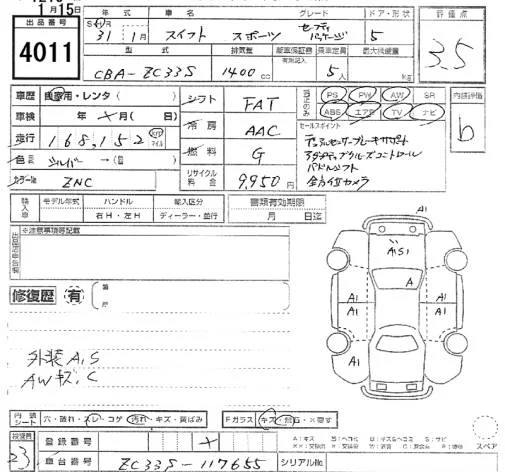 1月15日
出品番号
4011
年式 車名 グレード ドア・形状
31 1月 スイフト スポーツ セーフティパッケージ 5
型式 排気量 乗車定員 最大積載量
CBA-ZC33S 1400cc 5人 kg
評価点
3.5
車歴 自家用・レンタ( )
車検 年 月( 日)
走行 168,152 km マイル
色 シルバー→( )
カラーNo ZNC
シフト FAT
冷房 AAC
燃料 G
リサイクル料金 9,950円
PS PW AW SR
ABS エアB TV ナビ
セールスポイント
デュアルセンサーブレーキサポート
アダプティブクルーズコントロール
パドルシフト
全方位カメラ
内装評価
b
輸入車 モデル年式 ハンドル 輸入区分 書類有効期限
右H・左H ディーラー・並行 月 日迄
※注意事項等記載
修復歴 有
箇所
外装A,S
AWキズ,C
A1
A1S1
A
A1 A1
A1 A1
内装シート 穴・破れ・スレ・コゲ 汚れ・キズ・黄ばみ
Fガラス キズ・飛石・×要す
スペア
検査員
23
登録番号
車台番号 ZC33S-117655 シリアルNo